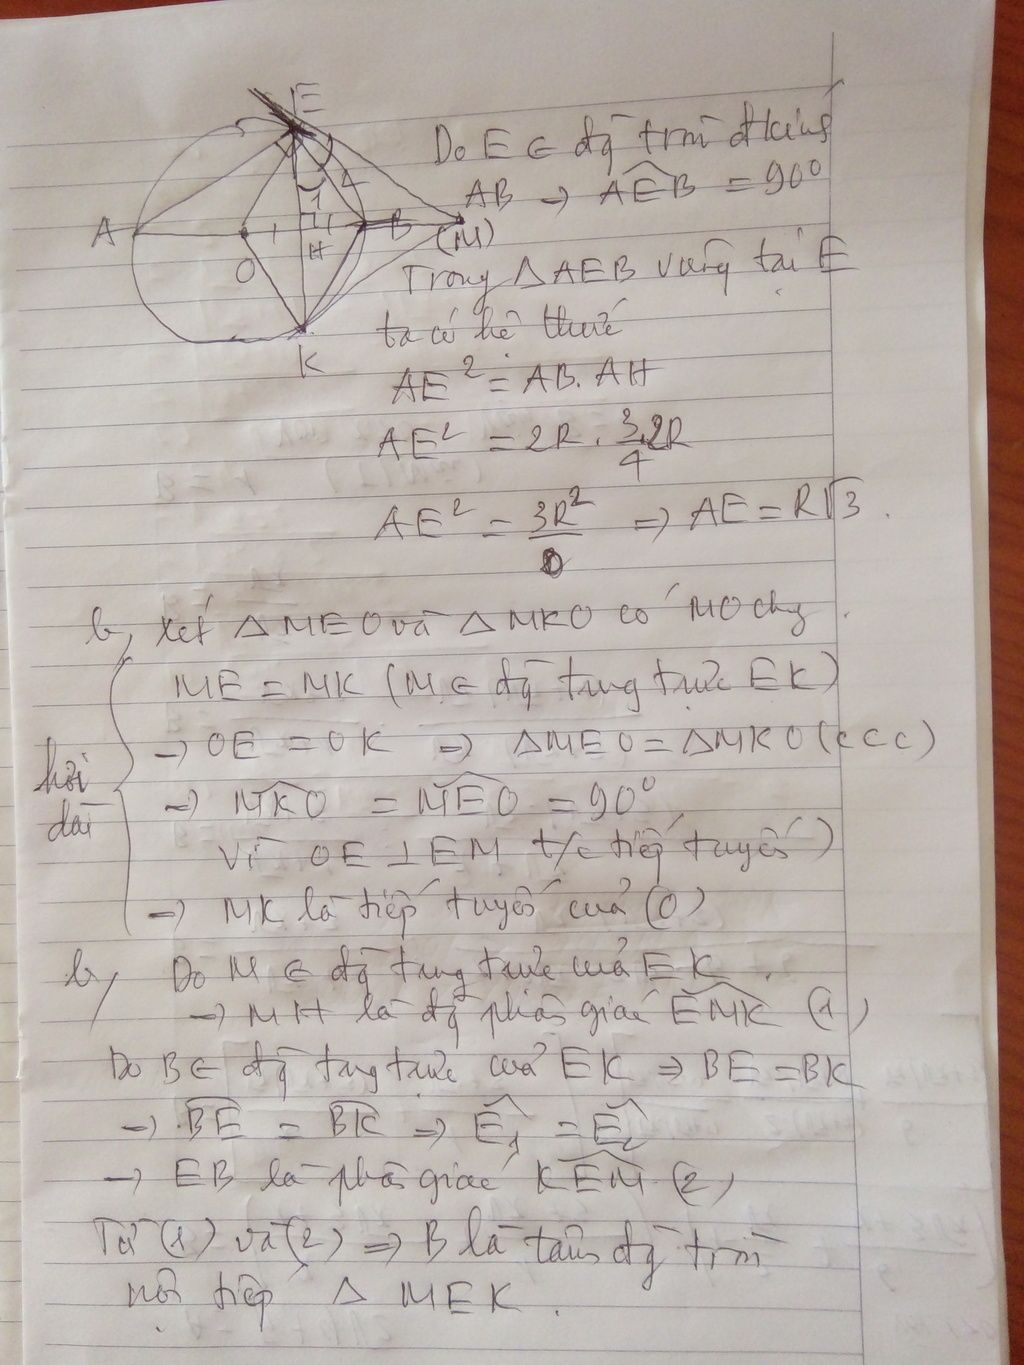 E
A
O
I
1
2
4
H
B
(M)
K
Do E ∈ đg tròn đkính
AB → AEB = 90⁰
Trong △AEB vuông tại E
ta có hệ thức
AE² = AB. AH
AE² = 2R . 3.2R/4
AE² = 3R² ⇒ AE = R√3.
b, xét △MEO và △MKO có MO chg
ME = MK (M ∈ đg trung trực EK)
→ OE = OK ⇒ △MEO = △MKO (c c c)
hơi dài
→ MKO = MEO = 90⁰
Vì OE ⊥ EM t/c tiếp tuyến)
→ MK là tiếp tuyến của (O)
b, Do M ∈ đg trung trực của EK.
→ MH là đg phân giác EMK (1)
Do B ∈ đg trung trực của EK ⇒ BE = BK
→ BE = BK ⇒ E₁ = E₂
→ EB là phân giác KEM (2)
Từ (1) và (2) ⇒ B là tâm đg tròn
nội tiếp △ MEK.